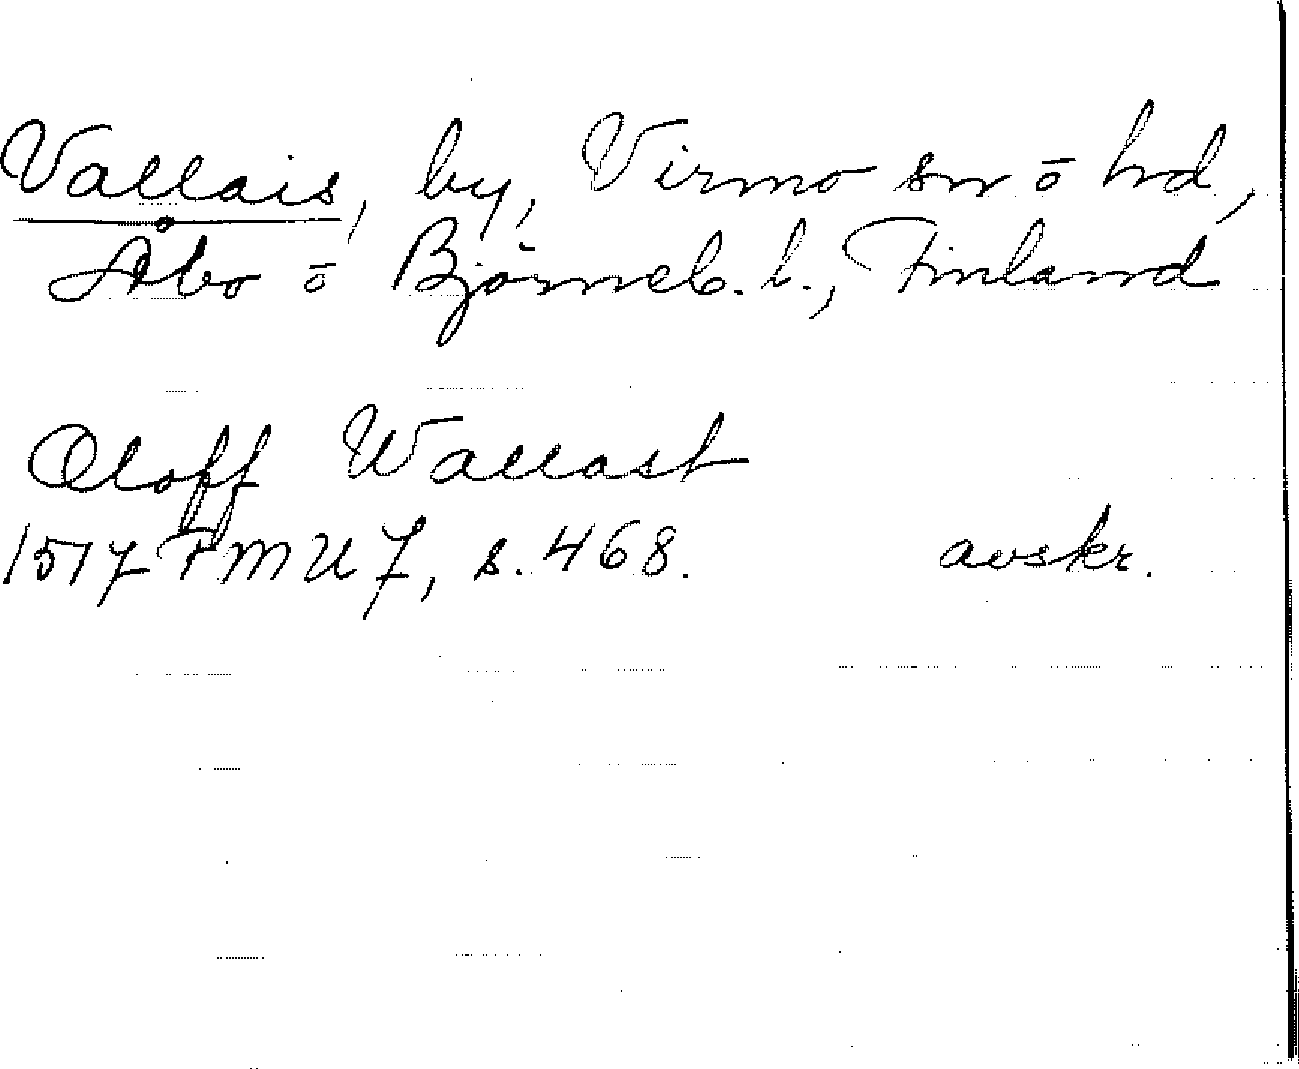 Vallais, by, Virmo sn ō hd,
Åbo ō Björneb. l., Finland
Oloff Wallast
1517 FMU 7, s. 468. avskr.